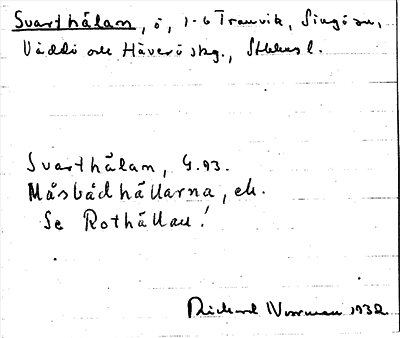 Svarthålan, ö, 1-6 Tranvik, Singö sn,
Väddö och Häverö skg., Sthlms l.
Svarthålan, G.93.
Måsbådhällarna, ek.
Se Rothällan!
Rickard Norrman 1932